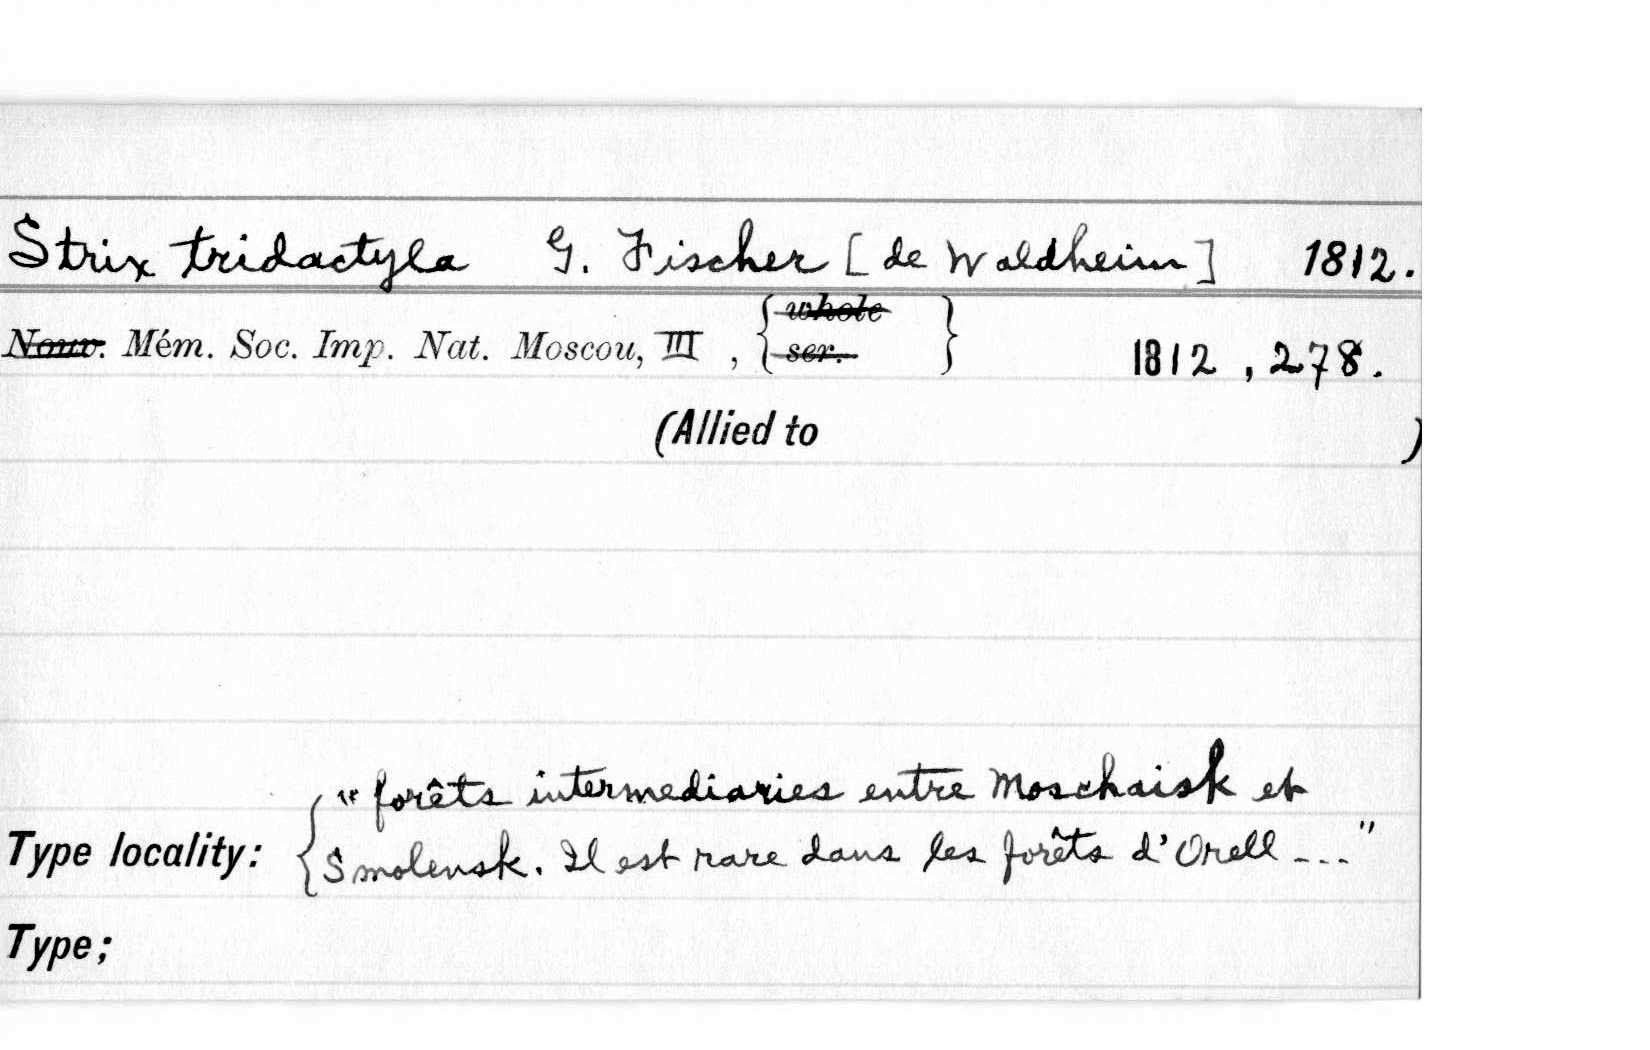 Strix tridactyla G. Fischer [de Waldheim] 1812.
Nouv. Mém. Soc. Imp. Nat. Moscou, III , { whole ser. } 1812 , 278.
(Allied to )
"forêts intermediaries entre Moschaisk et
Type locality: { Smolensk. Il est rare dans les forêts d'Orell ---"
Type;